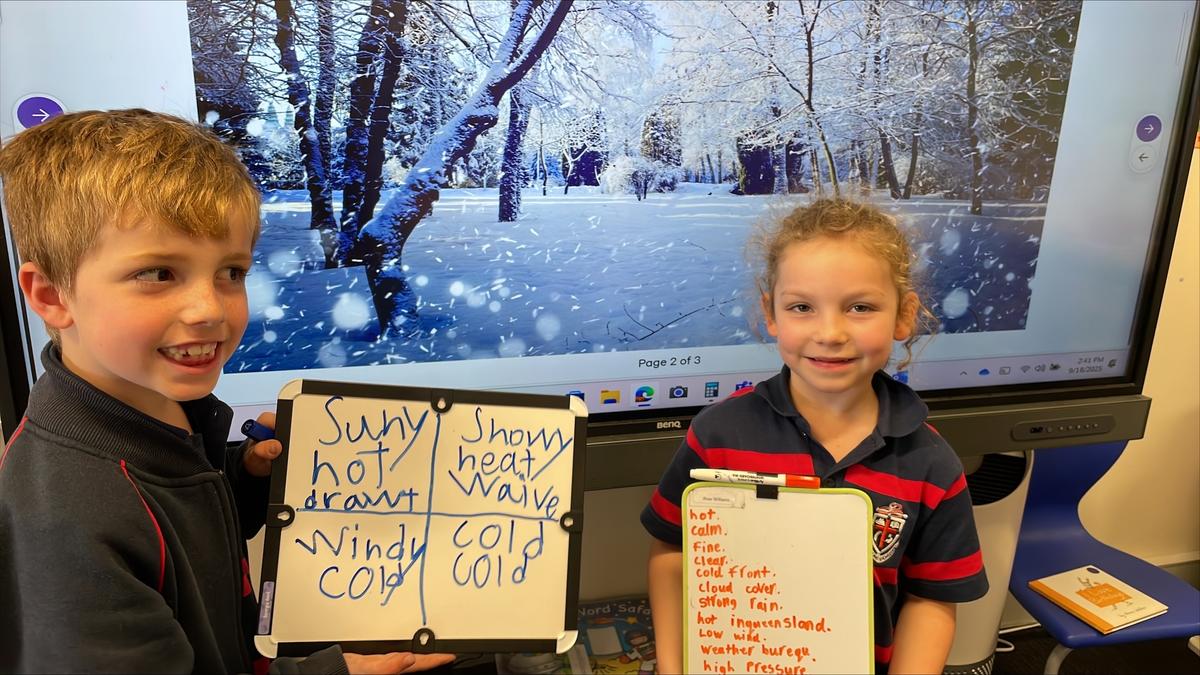 Page 2 of 3
2:41 PM
9/18/2025
BenQ
Suny
hot
drawt
Snowy
heat
Waive
Windy
cold
cold
cold
hot.
calm.
Fine.
clear.
cold front.
cloud cover.
strong rain.
hot inqueensland.
Low wind.
weather burequ.
high Pressure